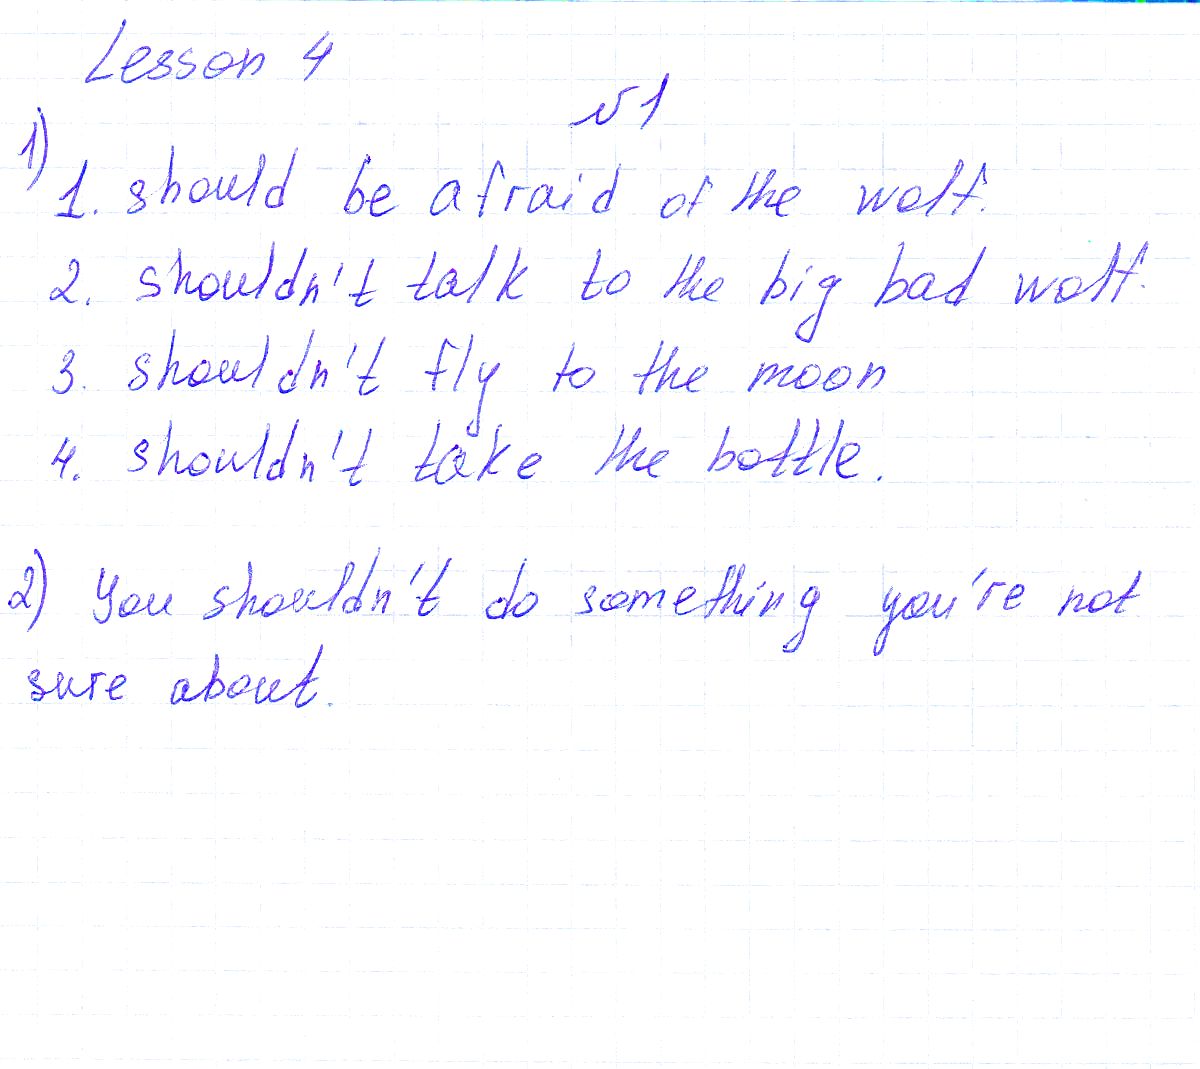 Lesson 4
№1
1)
1. should be afraid of the wolf.
2. shouldn't talk to the big bad wolf.
3. shouldn't fly to the moon
4. shouldn't take the bottle.
2) You shouldn't do something you're not
sure about.